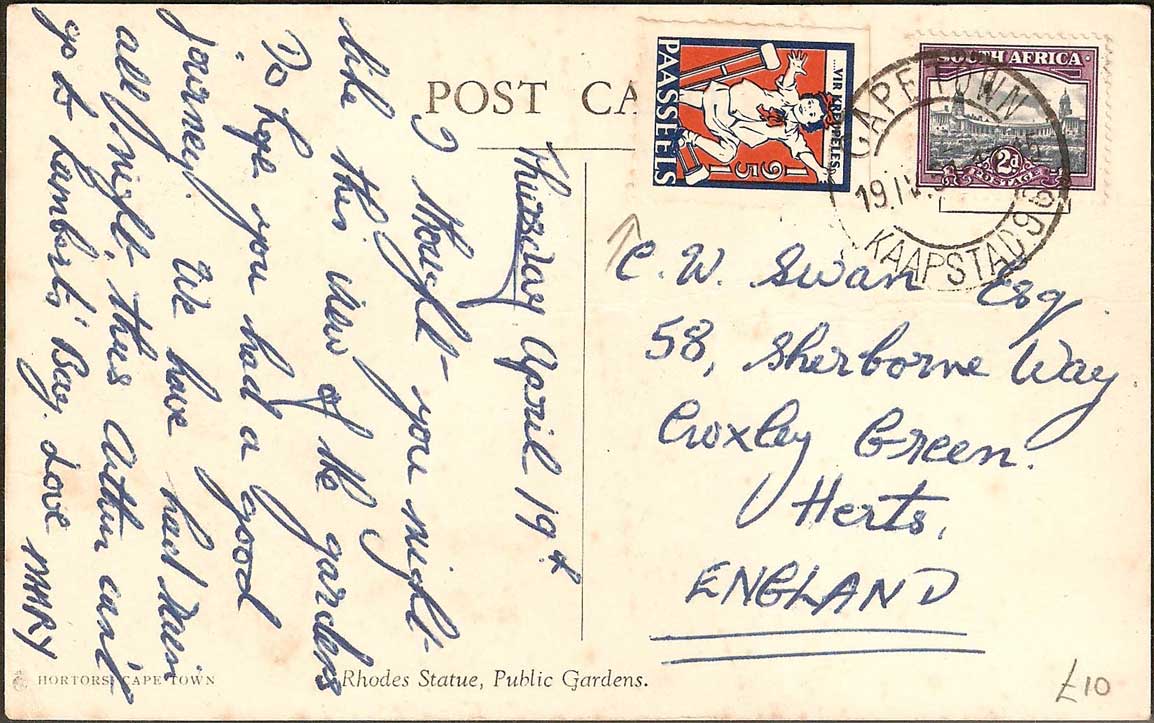 POST CA
Thursday April 19th
I thought you might
like this view of the gardens
Do hope you had a good
journey. We have had rain
all night, thus Arthur can't
go to Lambert's Bay. Love MARY
...VIR KREUPELES...
1951
PAASSEËLS
SOUTH AFRICA
2d
POSTAGE
CAPE TOWN
19.IV.
KAAPSTAD
C. W. Swan Esq
58, Sherborne Way
Croxley Green.
Herts,
ENGLAND
HORTORS, CAPE TOWN
Rhodes Statue, Public Gardens.
£10